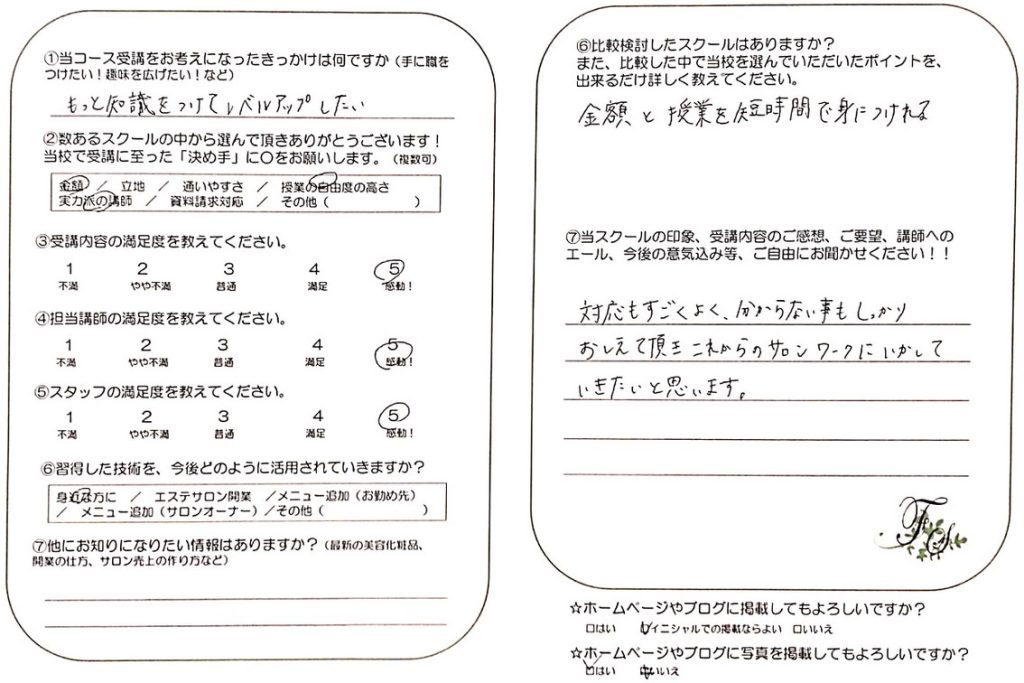 ①当コース受講をお考えになったきっかけは何ですか（手に職を
つけたい！趣味を広げたい！など）
もっと知識をつけてレベルアップしたい
②数あるスクールの中から選んで頂きありがとうございます！
当校で受講に至った「決め手」に〇をお願いします。（複数可）
金額 ／ 立地 ／ 通いやすさ ／ 授業の自由度の高さ
実力派の講師 ／ 資料請求対応 ／ その他（ ）
③受講内容の満足度を教えてください。
1 2 3 4 5
不満 やや不満 普通 満足 感動！
④担当講師の満足度を教えてください。
1 2 3 4 5
不満 やや不満 普通 満足 感動！
⑤スタッフの満足度を教えてください。
1 2 3 4 5
不満 やや不満 普通 満足 感動！
⑥習得した技術を、今後どのように活用されていきますか？
身近な方に ／ エステサロン開業 ／メニュー追加（お勤め先）
／ メニュー追加（サロンオーナー）／その他（ ）
⑦他にお知りになりたい情報はありますか？（最新の美容化粧品、
開業の仕方、サロン売上の作り方など）
⑥比較検討したスクールはありますか？
また、比較した中で当校を選んでいただいたポイントを、
出来るだけ詳しく教えてください。
金額と授業を短時間で身につけれる
⑦当スクールの印象、受講内容のご感想、ご要望、講師への
エール、今後の意気込み等、ご自由にお聞かせください！！
対応もすごくよく、分からない事もしっかり
おしえて頂き これからのサロンワークにいかして
いきたいと思います。
FS
☆ホームページやブログに掲載してもよろしいですか？
□はい ☑イニシャルでの掲載ならよい □いいえ
☆ホームページやブログに写真を掲載してもよろしいですか？
☑はい □いいえ